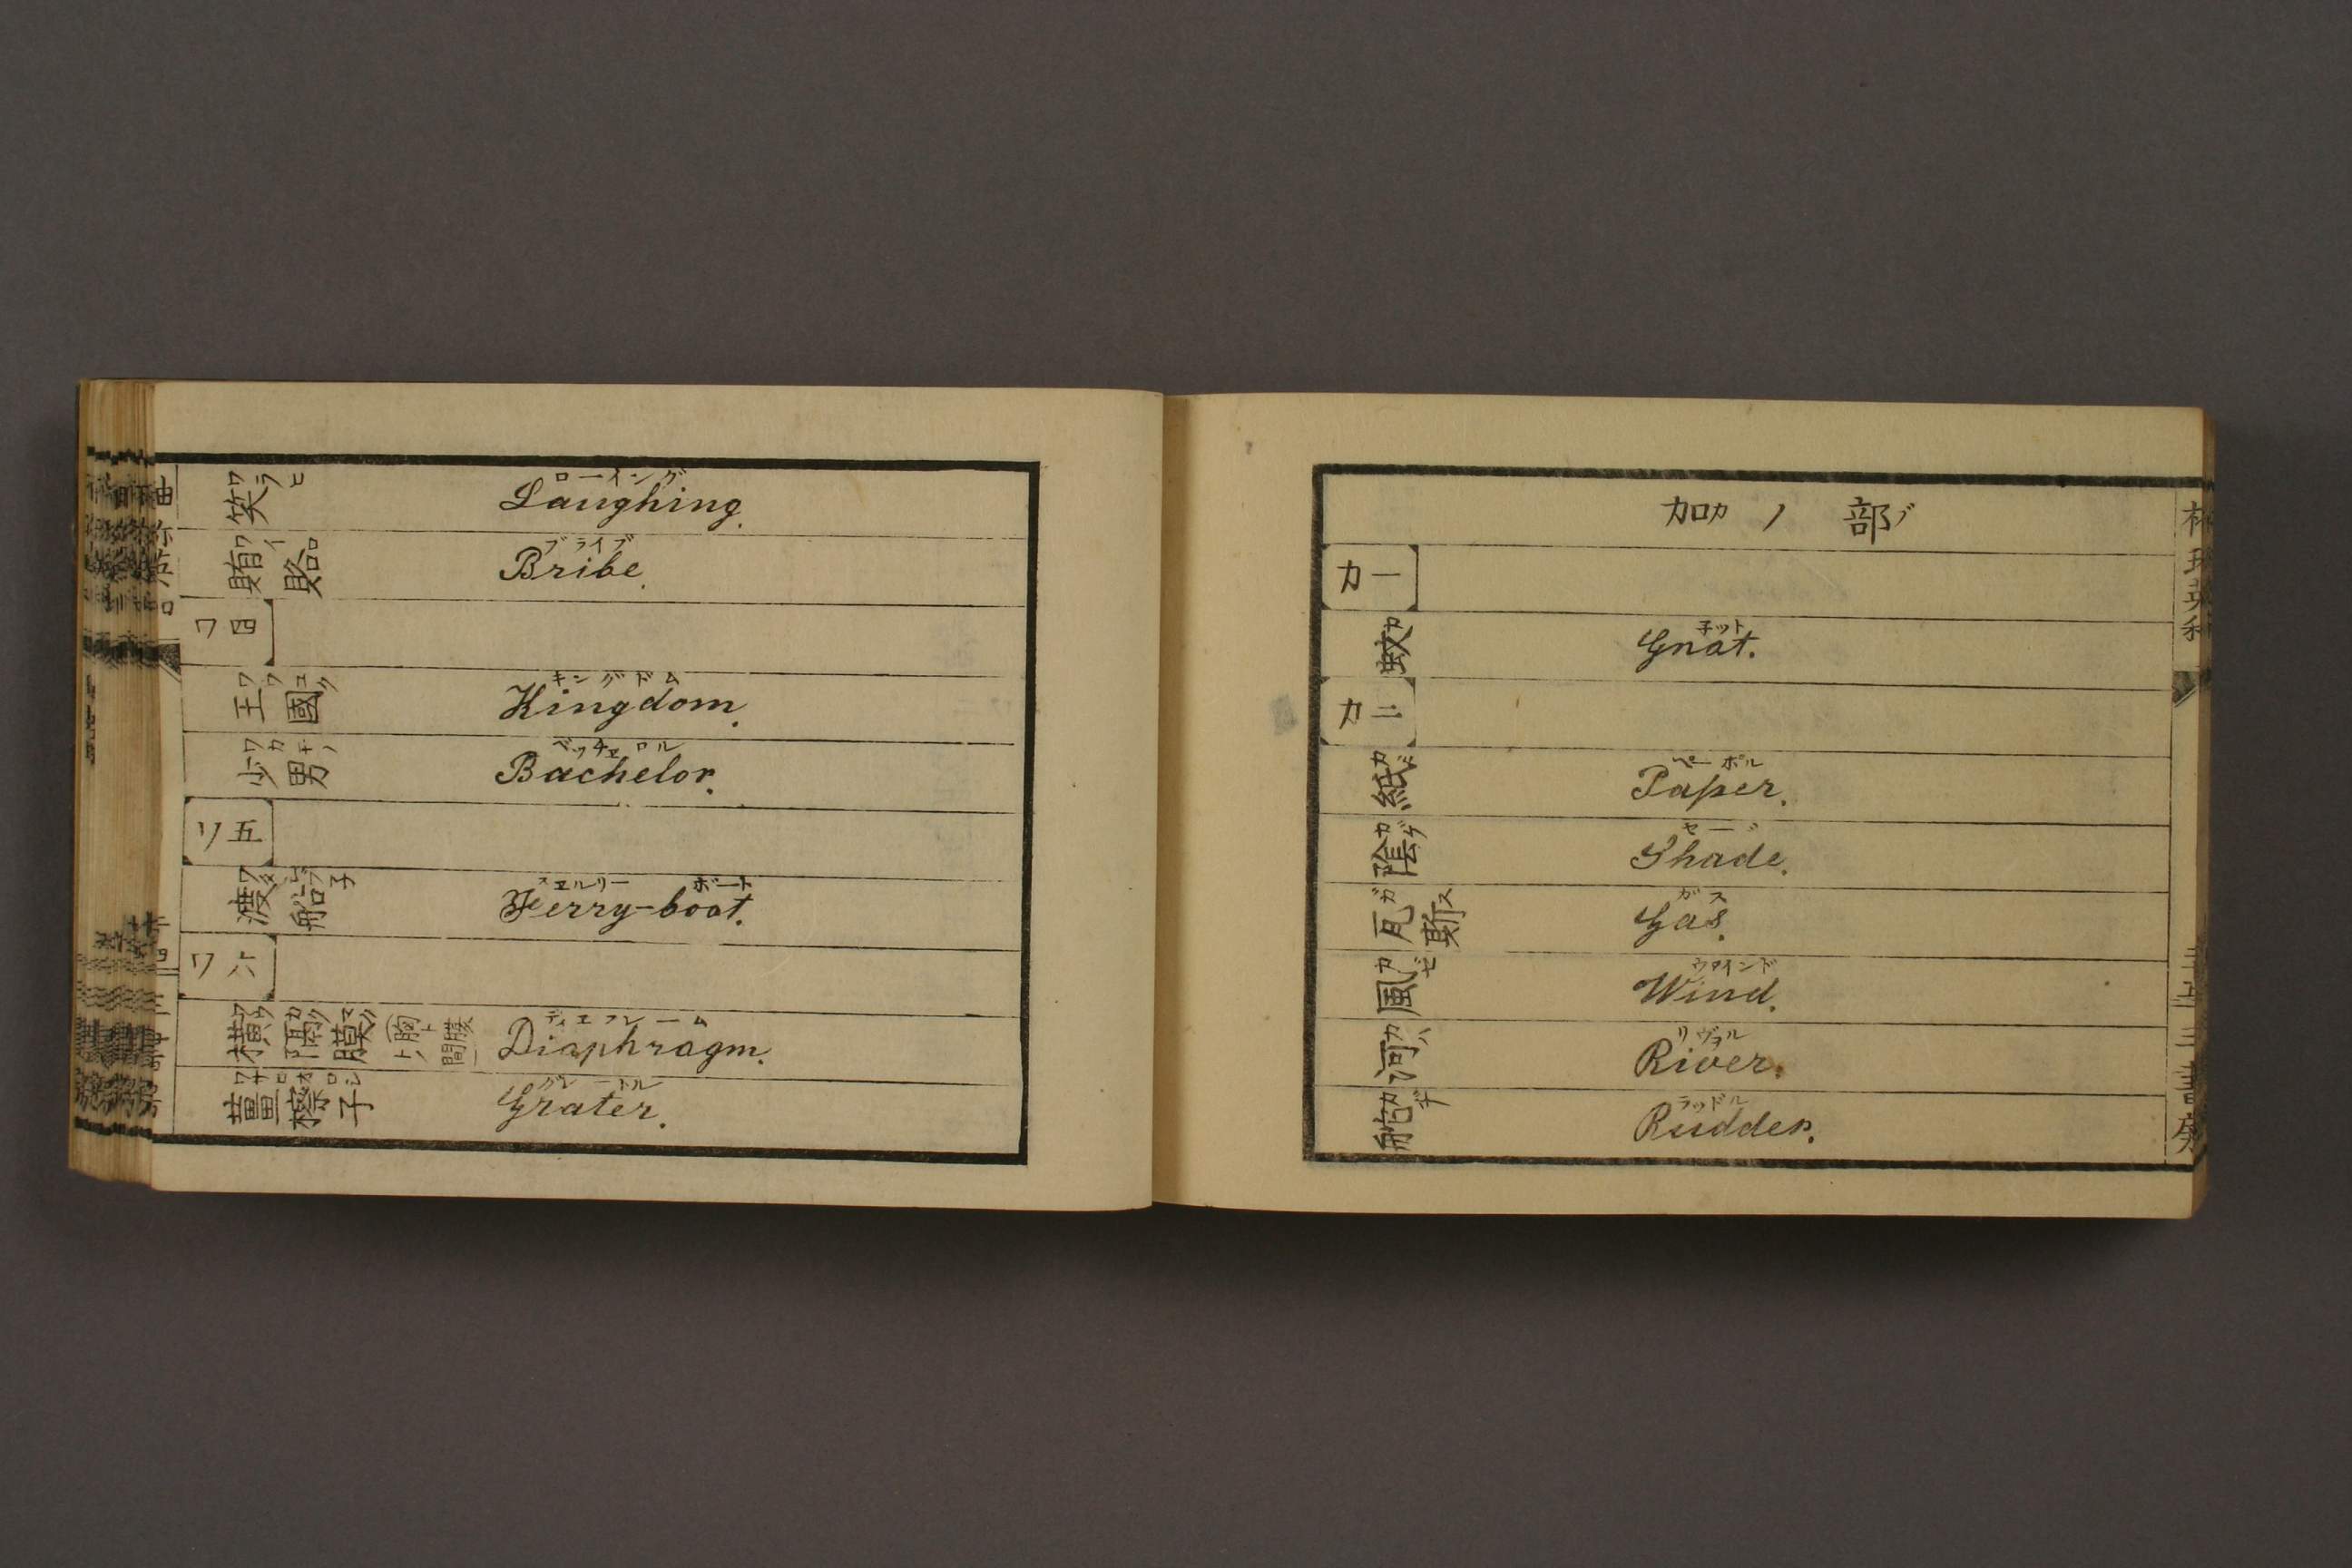 笑 ワラヒ Laughing. ローイング
賄賂 ワイロ Bribe. ブライブ
ワ四
王國 ワウコク Kingdom. キングドム
少男 ワカキ Bachelor. ベッチェロル
リ五
渡船 Ferry-boat. フエルリー ボート
ワ六
横隔膜 ワウカクマク (胸ト腹トノ間) Diaphragm. ディエフレーム
薑擦子 Grater. グレートル
加カノ部ブ
カ一
蚊 カ Gnat. 子ット
カ二
紙 カミ Paper. ペーポル
陰 カゲ Shade. セード
瓦斯 ガス Gas. ガス
風 カゼ Wind. ウヰインド
河 カハ River. リヴヲル
舵 カヂ Rudder. ラッドル
林氏英和